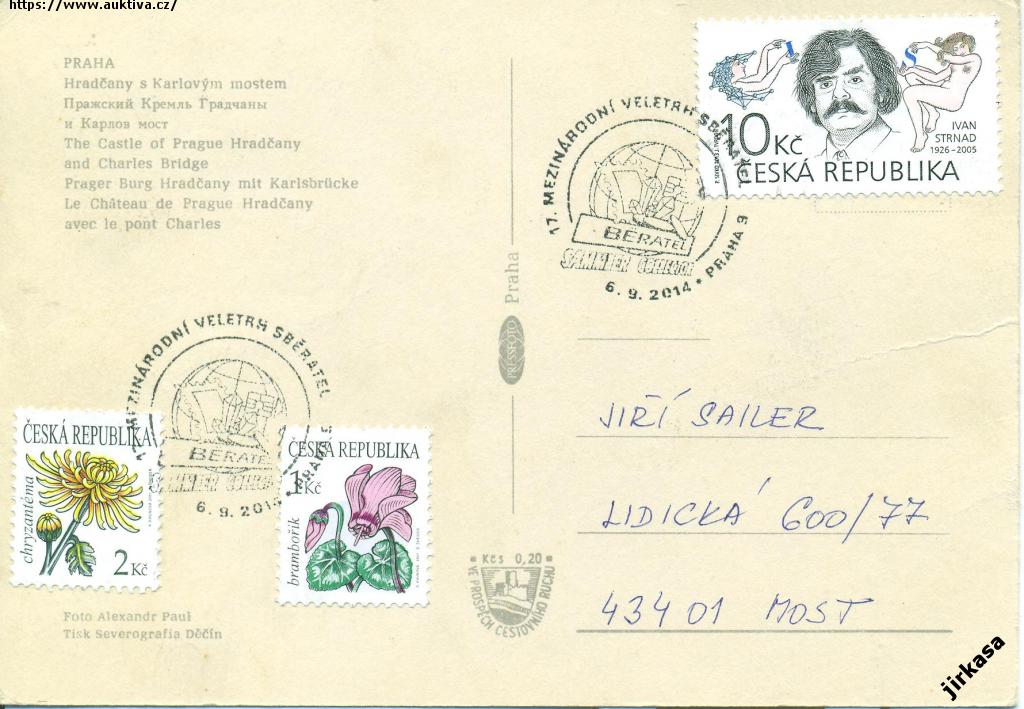 https://www.auktiva.cz/
PRAHA
Hradčany s Karlovým mostem
Пражский Кремль Градчаны
и Карлов мост
The Castle of Prague Hradčany
and Charles Bridge
Prager Burg Hradčany mit Karlsbrücke
Le Château de Prague Hradčany
avec le pont Charles
17. MEZINÁRODNÍ VELETRH SBĚRATEL
BĚRATEL
SAMMLER COLLECTOR
6. 9. 2014 * PRAHA 9
I S
IVAN
STRNAD
1926-2005
10 Kč
ČESKÁ REPUBLIKA
Praha
PRESSFOTO
17. MEZINÁRODNÍ VELETRH SBĚRATEL
BĚRATEL
SAMMLER COLLECTOR
6. 9. 2014 * PRAHA
ČESKÁ REPUBLIKA
chryzantéma
2 Kč
ČESKÁ REPUBLIKA
1 Kč
brambořík
JIŘÍ SAILER
LIDICKÁ 600/77
434 01 MOST
Kčs 0,20
VE PROSPĚCH CESTOVNÍHO RUCHU
Foto Alexandr Paul
Tisk Severografia Děčín
jirkasa